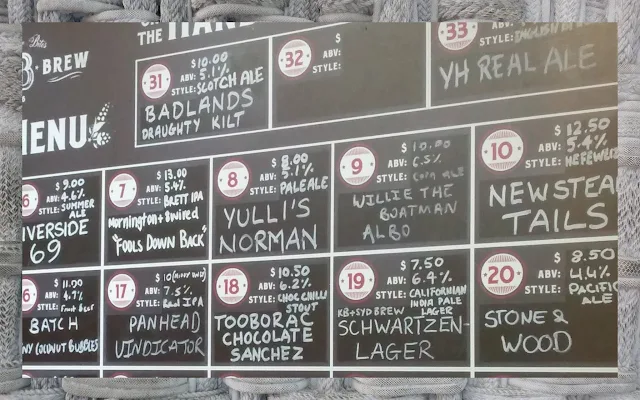 THE HAND
Bits
B·BREW
MENU
31
$10.00
ABV: 5.1%
STYLE: SCOTCH ALE
BADLANDS
DRAUGHTY KILT
32
$
ABV:
STYLE:
33
STYLE: ENGLISH
YH REAL ALE
6
$9.00
ABV: 4.6%
STYLE: SUMMER ALE
IVERSIDE
69
7
$13.00
ABV: 5.4%
STYLE: BRETT IPA
Mornington + 8wired
"FOOLS DOWN BACK"
8
$8.00
ABV: 5.1%
STYLE: PALE ALE
YULLI'S
NORMAN
9
$10.00
ABV: 6.5%
STYLE: Corn ale
WILLIE THE
BOATMAN
ALBO
10
$12.50
ABV: 5.4%
STYLE: HEFEWEI
NEWSTEA
TAILS
6
$11.00
ABV: 4.7%
STYLE: Fruit Beer
BATCH
NY COCONUT BUBBLES
17
$10
ABV: 7.5%
STYLE: Red IPA
PANHEAD
VINDICATOR
18
$10.50
ABV: 6.2%
STYLE: CHOC CHILLI
STOUT
TOOBORAC
CHOCOLATE
SANCHEZ
19
$7.50
ABV: 6.4%
STYLE: CALIFORNIAN
INDIA PALE
LAGER
KB+SYD BREW
SCHWARTZEN-
LAGER
20
$8.50
ABV: 4.4%
STYLE: PACIFIC
ALE
STONE &
WOOD